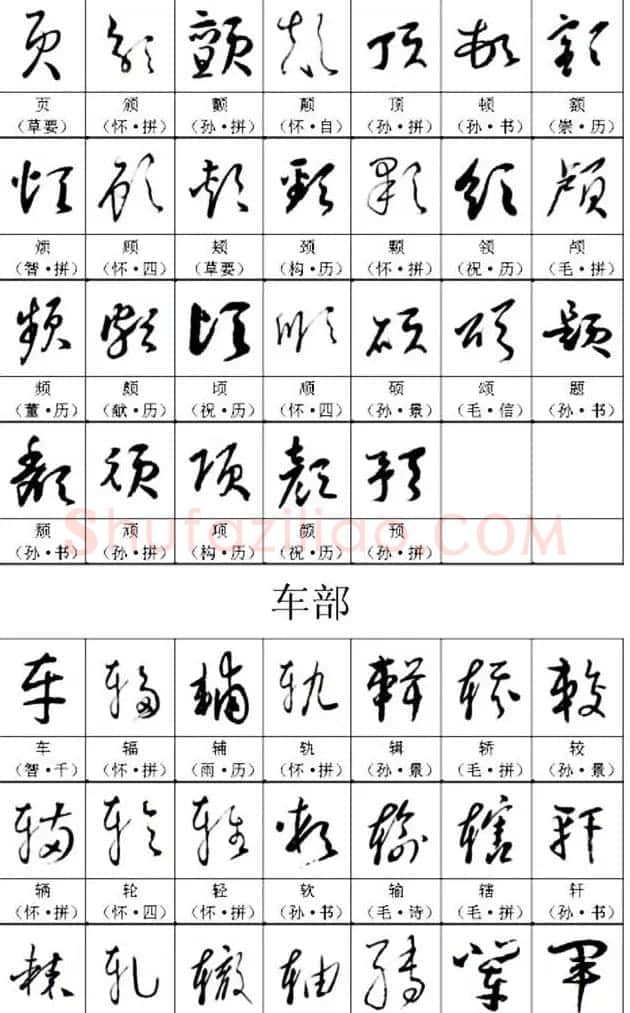 页 颁 颤 颠 顶 顿 额
（草要） （怀·拼） （孙·拼） （怀·自） （孙·拼） （孙·书） （崇·历）
烦 顾 颊 颈 颗 领 颅
（智·拼） （怀·四） （草要） （构·历） （怀·拼） （祝·历） （毛·拼）
频 颇 顷 顺 硕 颂 题
（董·历） （献·历） （祝·历） （怀·四） （孙·景） （毛·信） （孙·书）
颓 顽 项 颜 预
（孙·书） （孙·拼） （构·历） （祝·历） （孙·拼）
Shufaziliao.COM
车部
车 辐 辅 轨 辑 轿 较
（智·千） （怀·拼） （雨·历） （怀·拼） （孙·景） （毛·拼） （孙·景）
辆 轮 轻 软 输 辖 轩
（怀·拼） （怀·四） （怀·拼） （孙·书） （毛·诗） （毛·拼） （孙·书）